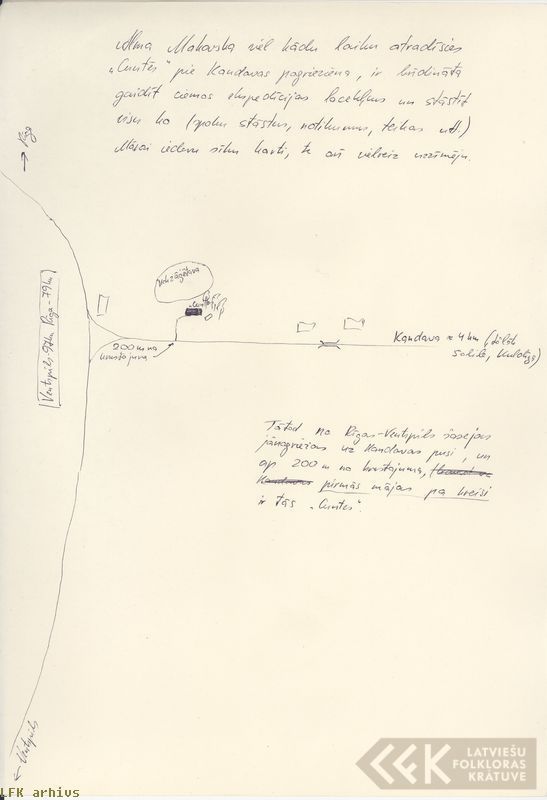 Alma Makovska vēl kādu laiku atradīsies
„Cuntēs" pie Kandavas pagrieziena, ir brīdināta
gaidīt ciemos ekspedīcijas locekļus un stāstīt
visu ko (spoku stāstus, notikumus, teikas utt.)
Māsai iedevu sīku karti, te arī vēlreiz uzzīmēju.
→ Rīga
Ventspils 97km Rīga - 79km
200 m no
krustojuma
Kandava ≈ 4 km (
Tātad no Rīgas-Ventspils šosejas
jānogriežas uz Kandavas pusi, un
ap 200 m no krustojuma,
pirmās mājas pa kreisi
ir tās „Cuntes".
← Ventspils
LFK arhīvs
LFK
LATVIEŠU
FOLKLORAS
KRĀTUVE